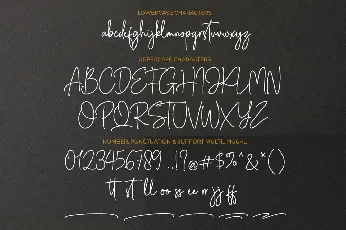 LOWERCASE CHARACTERS
abcdefghijklmnopqrstuvwxyz
UPPERCASE CHARACTERS
ABCDEFGHIJKLMN
OPQRSTUVWXYZ
NUMBER, PUNCTUATION & SUPPORT MULTILINGUAL
0123456789..,!?@#$%^&*()
tt st ll oo ss ee rr jj ff